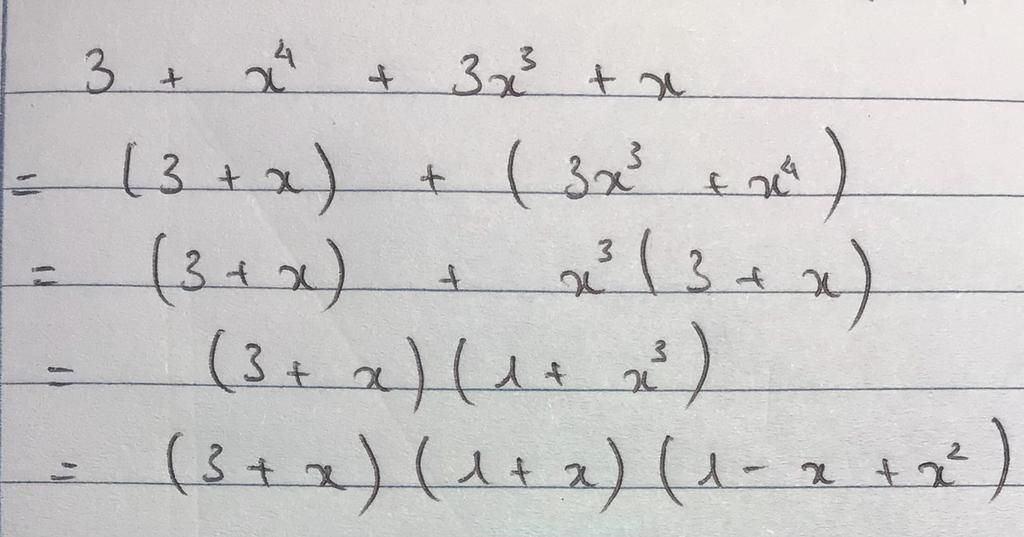 3 + x⁴ + 3x³ + x
= (3 + x) + (3x³ + x⁴)
= (3 + x) + x³(3 + x)
= (3 + x)(1 + x³)
= (3 + x)(1 + x)(1 - x + x²)